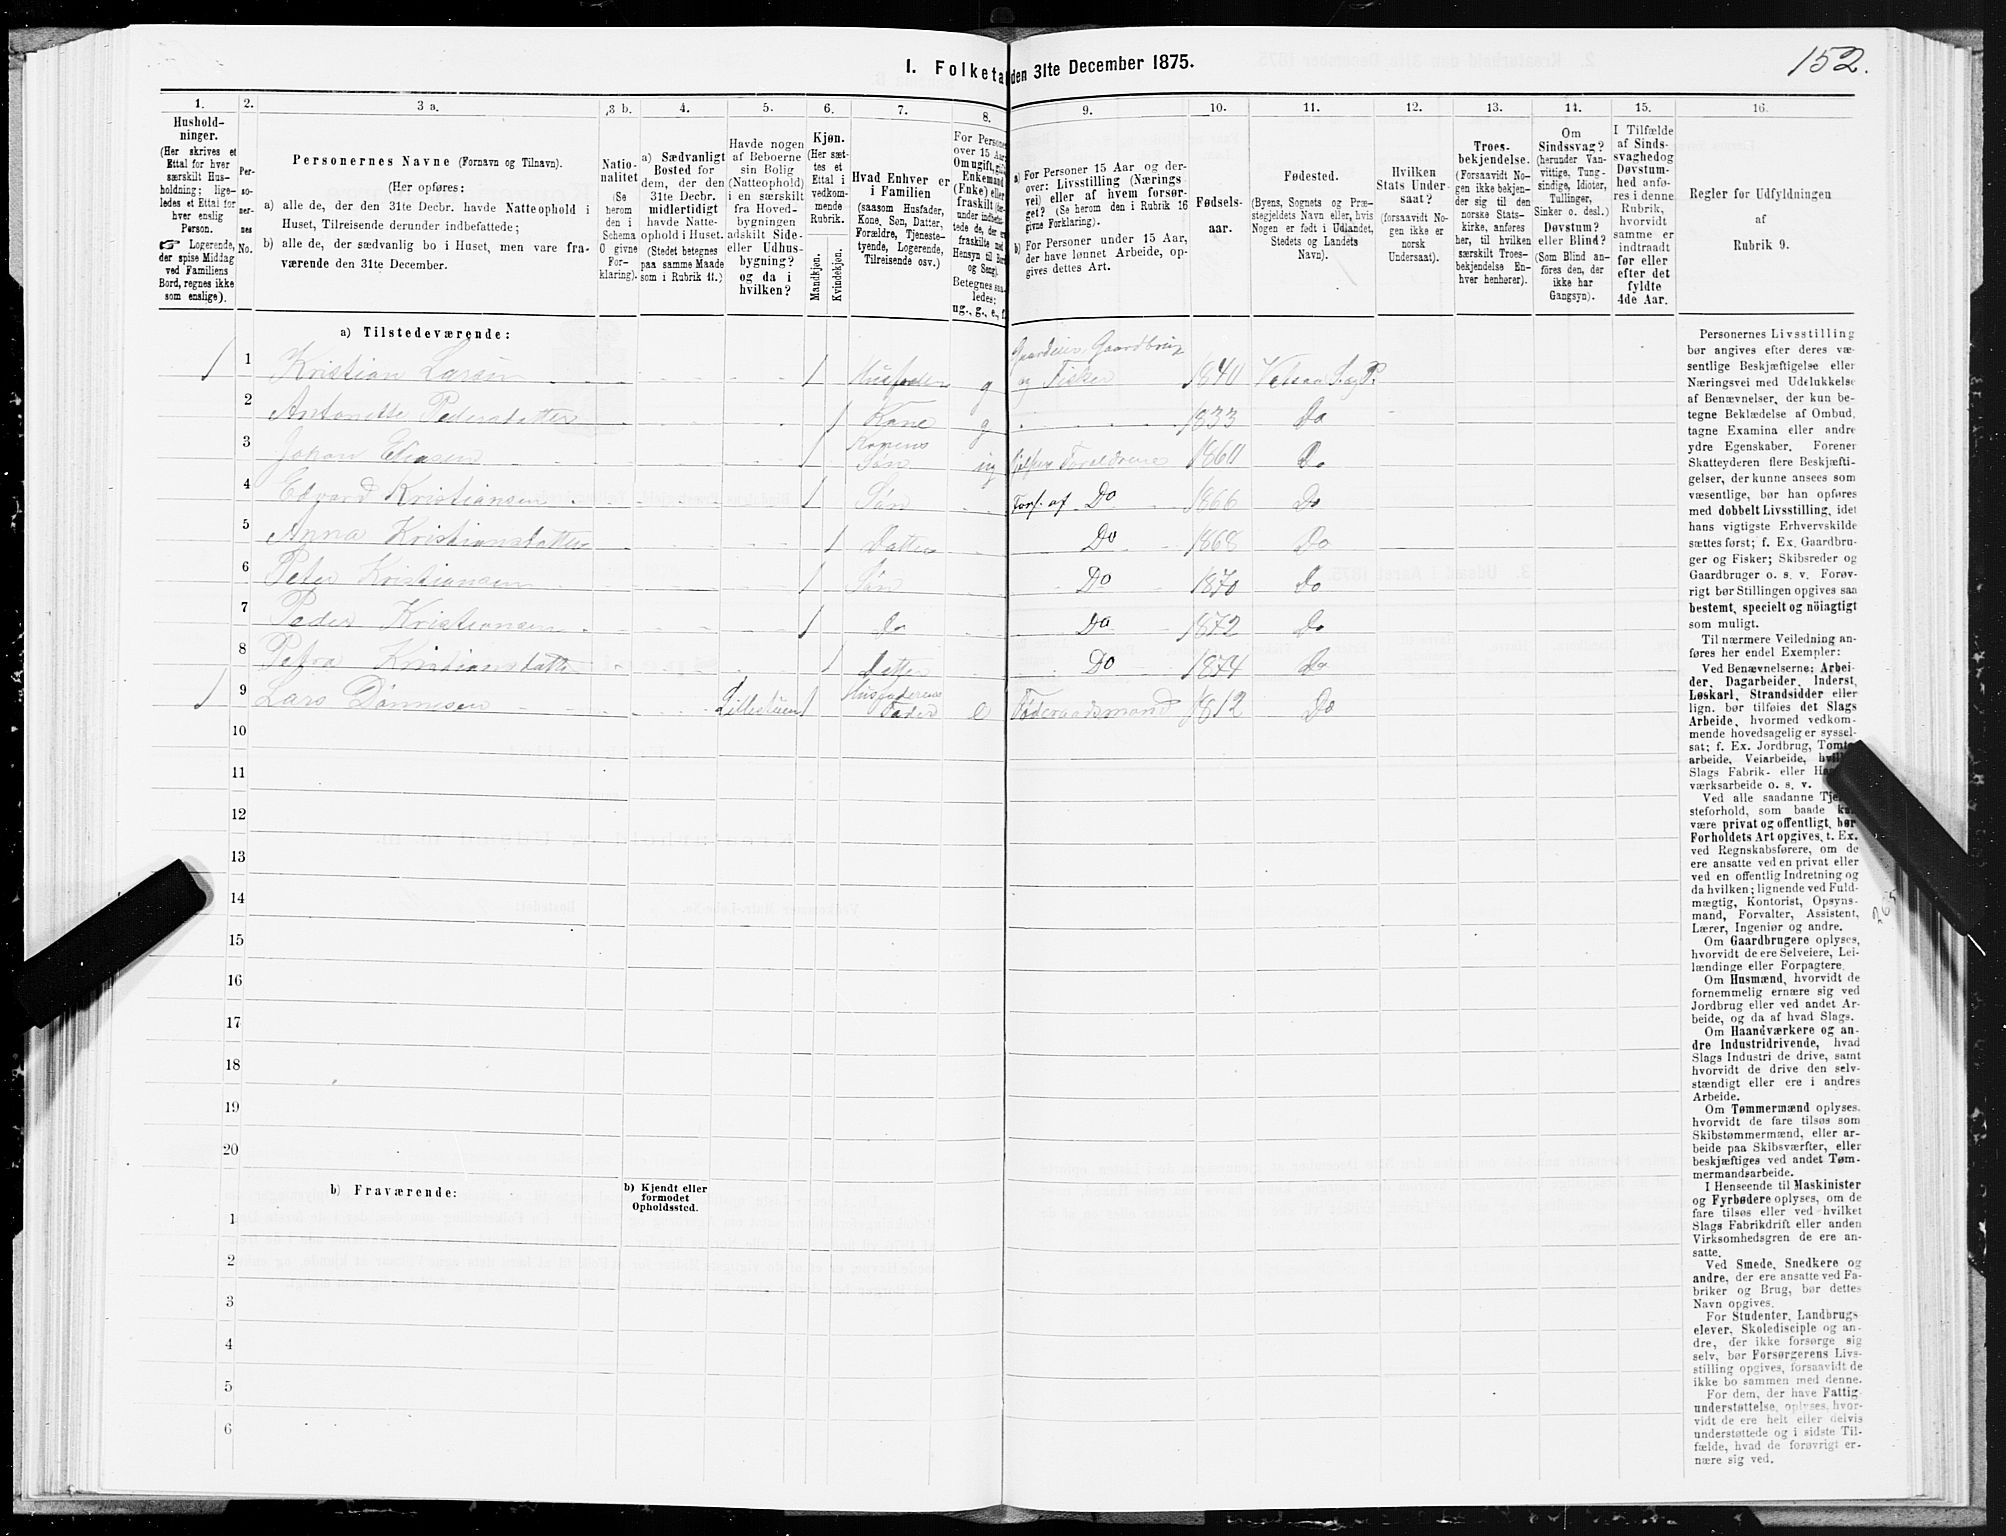 152.
I. Folketa den 31te December 1875.
1. 2. 3 a. 3 b. 4. 5. 6. 7. 8. 9. 10. 11. 12. 13. 14. 15. 16.
Hushold-
ninger.
(Her skrives et
Ettal for hver
særskilt Hus-
holdning; lige-
ledes et Ettal for
hver enslig
Person.
☞ Logerende,
der spise Middag
ved Familiens
Bord, regnes ikke
som enslige).
Per-
so-
ner-
nes
No.
Personernes Navne (Fornavn og Tilnavn).
(Her opføres:
a) alle de, der den 31te Decbr. havde Natteophold i
Huset, Tilreisende derunder indbefattede;
b) alle de, der sædvanlig bo i Huset, men vare fra-
værende den 31te December.
Natio-
nalitet
(Se
herom
den i
Schema
O givne
For-
klaring).
a) Sædvanligt
Bosted for
dem, der den
31te Decbr.
midlertidigt
havde Natte-
ophold i Huset.
(Stedet betegnes
paa samme Maade
som i Rubrik 11.)
Havde nogen
af Beboerne
sin Bolig
(Natteophold)
i en særskilt
fra Hoved-
bygningen
adskilt Side-
eller Udhus-
bygning?
og da i
hvilken?
Kjøn.
(Her sæt-
tes et
Ettal i
vedkom-
mende
Rubrik.
Mandkjøn.
Kvindekjøn.
Hvad Enhver er
i Familien
(saasom Husfader,
Kone, Søn, Datter,
Forældre, Tjeneste-
tyende, Logerende,
Tilreisende osv.)
For Personer
over 15 Aar:
Om ugift, gift,
Enkemand
(Enke) eller
fraskilt
Betegnes saa-
ledes:
ug., g., e., f.
a) For Personer 15 Aar og der-
over: Livsstilling (Nærings-
vei) eller af hvem forsør-
get? (Se herom den i Rubrik 16
givne Forklaring).
b) For Personer under 15 Aar,
der have lønnet Arbeide, op-
gives dettes Art.
Fødsels-
aar.
Fødested.
(Byens, Sognets og Præ-
stegjeldets Navn eller, hvis
Nogen er født i Udlandet,
Stedets og Landets
Navn).
Hvilken
Stats Under-
saat?
(forsaavidt No-
gen ikke er
norsk
Undersaat).
Troes-
bekjendelse.
(Forsaavidt No-
gen ikke bekjen-
der sig til den
norske Stats-
kirke, anføres
her, til hvilken
særskilt Troes-
bekjendelse En-
hver henhører).
Om
Sindssvag?
(herunder Van-
vittige, Tung-
sindige, Idioter,
Tullinger,
Sinker o. desl.)
Døvstum?
eller Blind?
(Som Blind an-
føres den, der
ikke har
Gangsyn).
I Tilfælde
af Sinds-
svaghed og
Døvstum-
hed anfø-
res i denne
Rubrik,
hvorvidt
samme er
indtraadt
før eller
efter det
fyldte
4de Aar.
Regler før Udfyldningen
af
Rubrik 9.
a) Tilstedeværende:
1 1 Kristian Larsen 1 Husfader g Gaardeier, Gaardbrug og Fisker 1840 S. og P.
2 Antonette Pedersdatter 1 Kone g 1833 Do
3 Johan Eliasen 1 Konens Søn ug hjelper Forældrene 1860 Do
4 Edvard Kristiansen 1 Søn Fors. af Do 1866 Do
5 Anna Kristiansdatter 1 Datter Do 1868 Do
6 Peter Kristiansen 1 Søn Do 1870 Do
7 Peder Kristiansen 1 Do Do 1872 Do
8 Petra Kristiansdatter 1 Datter Do 1874 Do
1 9 Lars Dønnesen Lillestuen 1 Husfaderens Fader e Føderaadsmand 1812 Do
10
11
12
13
14
15
16
17
18
19
20
b) Fraværende: b) Kjendt eller
formodet
Opholdssted.
1
2
3
4
5
6
Personernes Livsstilling
bør angives efter deres væ-
sentlige Beskjæftigelse eller
Næringsvei med Udelukkelse
af Benævnelser, der kun be-
tegne Beklædelse af Ombud,
tagne Examina eller andre
ydre Egenskaber. Forener
Skatteyderen flere Beskjæfti-
gelser, der kunne ansees som
væsentlige, bør han opføres
med dobbelt Livsstilling, idet
hans vigtigste Erhvervskilde
sættes først; f. Ex. Gaardbru-
ger og Fisker; Skibsreder og
Gaardbruger o. s. v. Forøv-
rigt bør Stillingen opgives saa
bestemt, specielt og nöiagtigt
som muligt.
Til nærmere Veiledning an-
føres her endel Exempler:
Ved Benævnelserne: Arbei-
der, Dagarbeider, Inderst,
Løskarl, Strandsidder eller
lign. bør tilføies det Slags
Arbeide, hvormed vedkom-
mende hovedsagelig er syssel-
sat; f. Ex. Jordbrug, Tømte-
arbeide, Veiarbeide, hvilk
Slags Fabrik- eller Haa
værksarbeide o. s. v.
Ved alle saadanne Tje
steforhold, som baade kun
være privat og offentligt, bør
Forholdets Art opgives, t. Ex.
ved Regnskabsførere, om de
ere ansatte ved en privat eller
ved en offentlig Indretning og
da hvilken; lignende ved Fuld-
mægtig, Kontorist, Opsyns-
mand, Forvalter, Assistent,
Lærer, Ingeniør og andre.
Om Gaardbrugere oplyses,
hvorvidt de ere Selveiere, Lei-
lændinge eller Forpagtere.
Om Husmænd, hvorvidt de
fornemmelig ernære sig ved
Jordbrug eller ved andet Ar-
beide, og da af hvad Slags.
Om Haandværkere og an-
dre Industridrivende, hvad
Slags Industri de drive, samt
hvorvidt de drive den selv-
stændigt eller ere i andres
Arbeide.
Om Tømmermænd oplyses,
hvorvidt de fare tilsøs som
Skibstømmermænd, eller ar-
beide paa Skibsværfter, eller
beskjæftiges ved andet Tøm-
mermandsarbeide.
I Henseende til Maskinister
og Fyrbødere oplyses, om de
fare tilsøs eller ved hvilket
Slags Fabrikdrift eller anden
Virksomhedsgren de ere an-
satte.
Ved Smede, Snedkere og
andre, der ere ansatte ved Fa-
briker og Brug, bør dettes
Navn opgives.
For Studenter, Landbrugs
elever, Skoledisciple og an-
dre, der ikke forsørge sig
selv, bør Forsørgerens Livs-
stilling opgives, forsaavidt de
ikke bo sammen med denne.
For dem, der have Fattig-
understøttelse, oplyses, hvor-
vidt de ere helt eller delvis
understøttede og i sidste Til-
fælde, hvad de forøvrigt er-
nære sig ved.